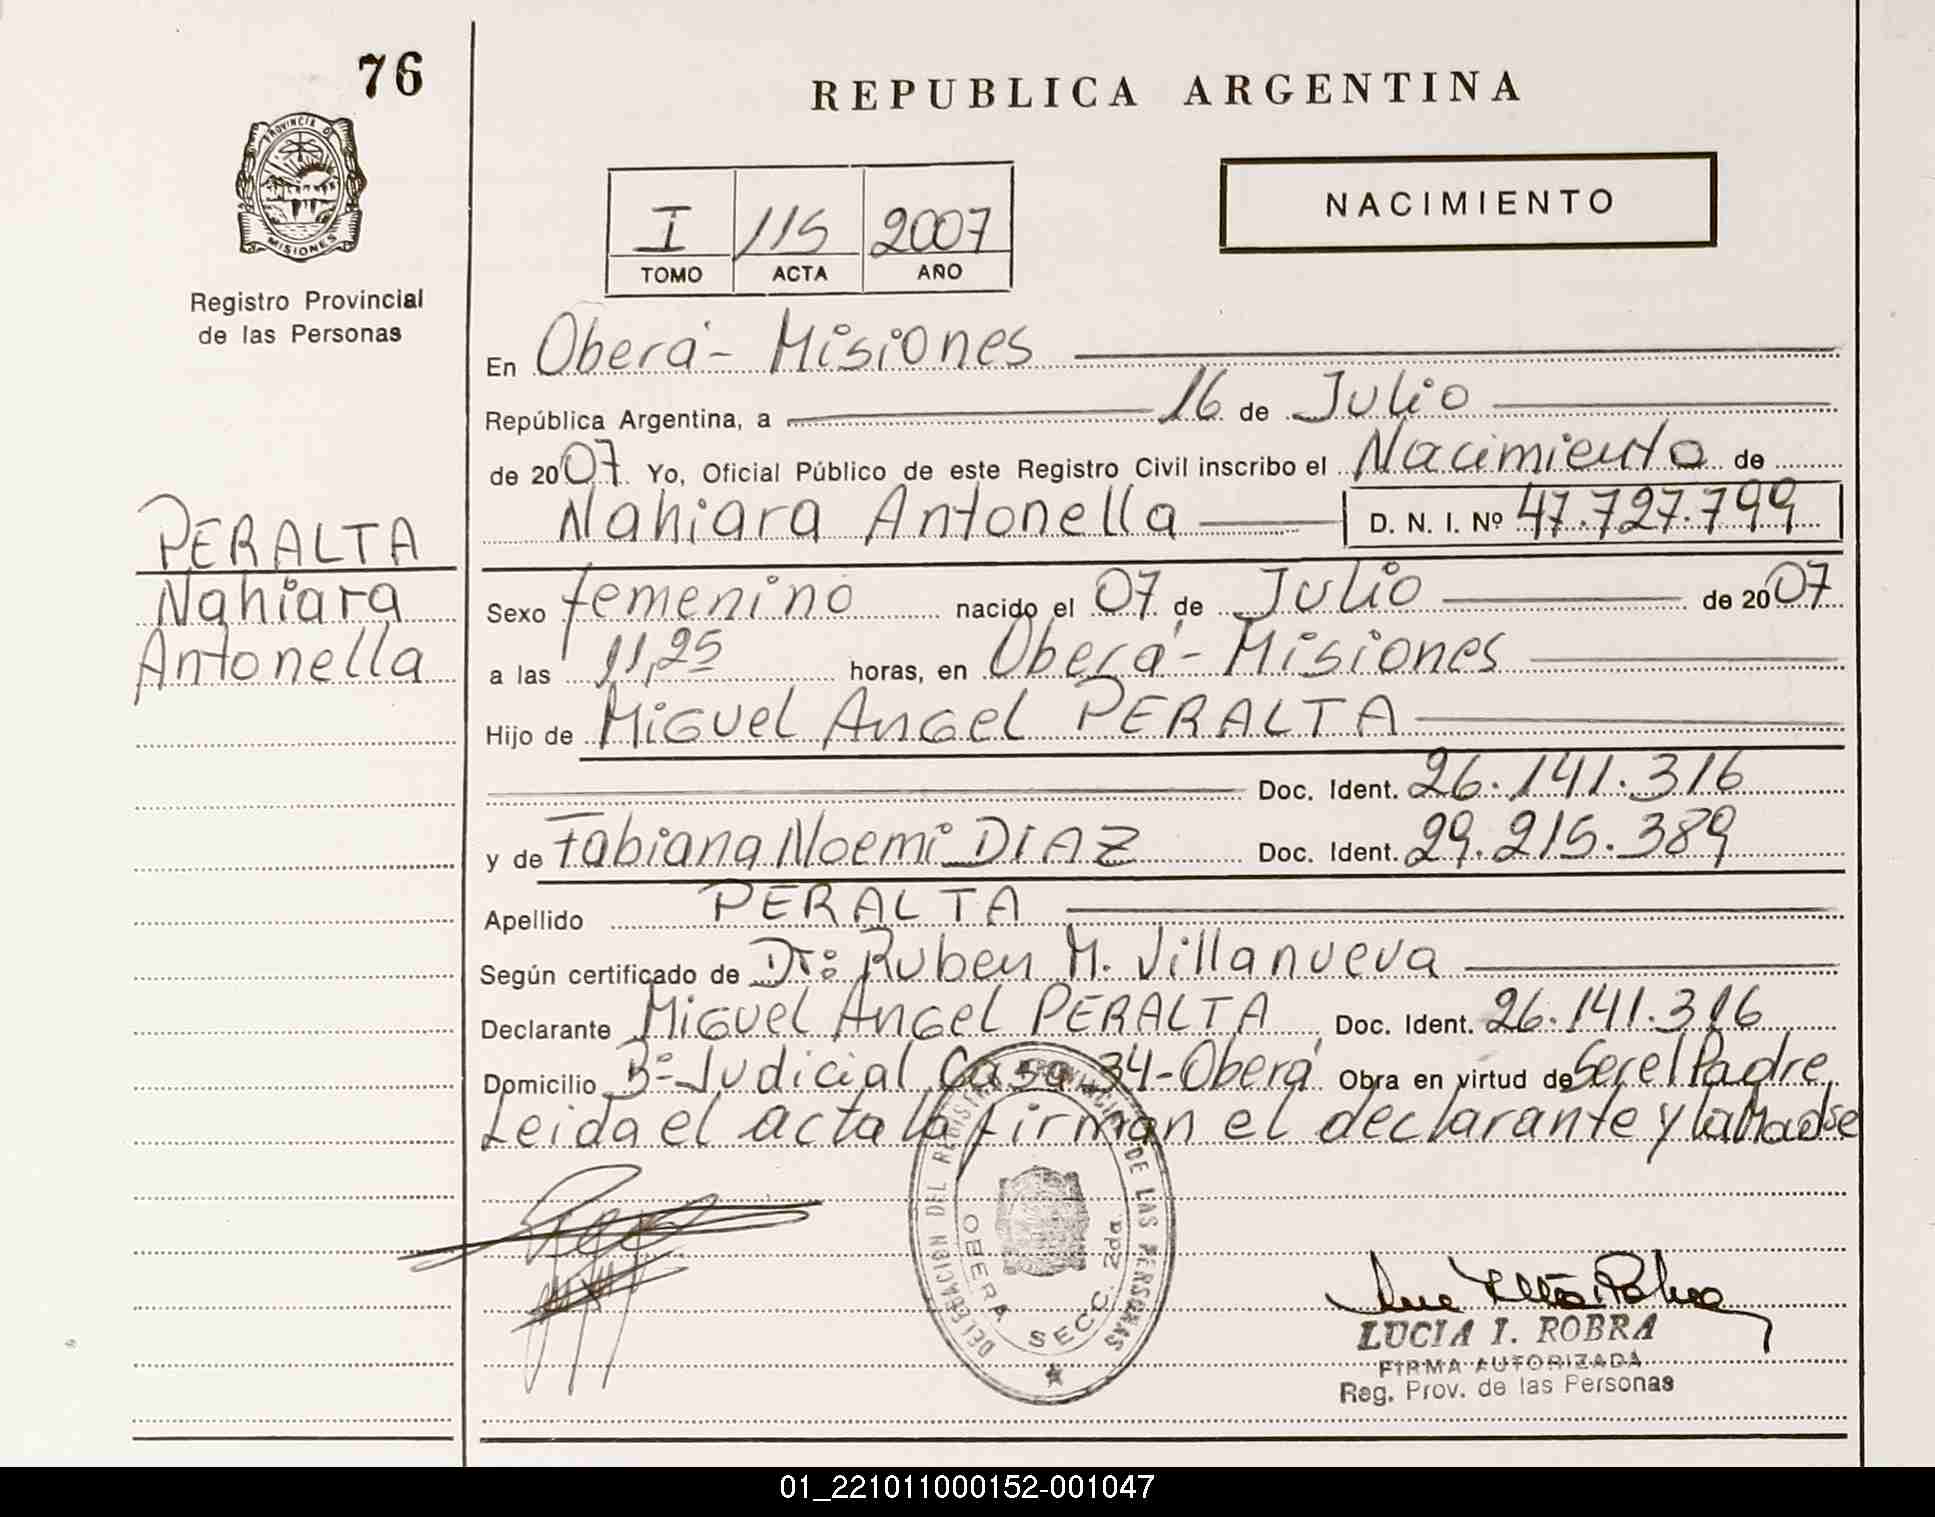 76
REPUBLICA ARGENTINA
PROVINCIA DE
MISIONES
Registro Provincial
de las Personas
NACIMIENTO
I 115 2007
TOMO ACTA AÑO
En Oberá - Misiones
República Argentina, a 16 de Julio
de 2007 Yo, Oficial Público de este Registro Civil inscribo el Nacimiento de
Nahiara Antonella D. N. I. Nº 47.727.799
PERALTA
Nahiara
Antonella
Sexo femenino nacido el 07 de Julio de 2007
a las 11,25 horas, en Oberá - Misiones
Hijo de Miguel Angel PERALTA
Doc. Ident. 26.141.316
y de Fabiana Noemi DIAZ Doc. Ident. 29.215.389
Apellido PERALTA
Según certificado de Dr: Ruben M. Villanueva
Declarante Miguel Angel PERALTA Doc. Ident. 26.141.316
Domicilio Bº Judicial Casa 34 - Oberá Obra en virtud de Ser el Padre
Leida el acta la firman el declarante y la Madre
DELEGACION DEL REGISTRO PROVINCIAL DE LAS PERSONAS
OBERA SECC. 2da.
LUCIA I. ROBRA
FIRMA AUTORIZADA
Reg. Prov. de las Personas
01_221011000152-001047